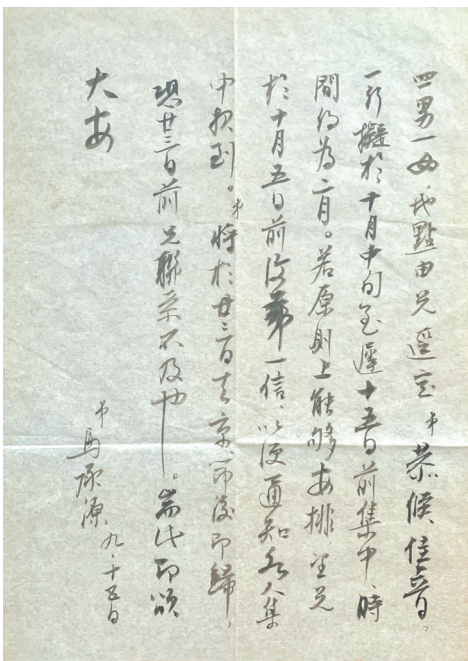 四男一女，地點由兄逕定，弟恭候佳音。
一行擬於十月中旬至遲十五日前集中，時
間約為二月。若原則上能够安排，望兄
於十月五日前復弟一信，以便通知各人集
中報到。弟將於廿三日去京，節後即歸，
恐廿三日前兄聯系不及也。耑此即頌
大安
弟馬承源 九·十五日